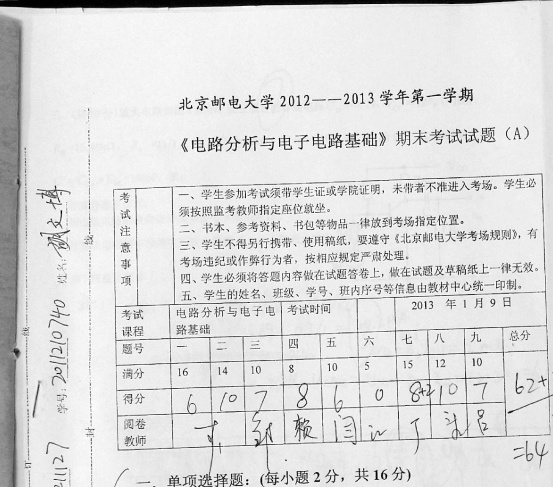 北京邮电大学 2012——2013 学年第一学期
《电路分析与电子电路基础》期末考试试题（A）
考试注意事项
一、学生参加考试须带学生证或学院证明，未带者不准进入考场。学生必
须按照监考教师指定座位就坐。
二、书本、参考资料、书包等物品一律放到考场指定位置。
三、学生不得另行携带、使用稿纸，要遵守《北京邮电大学考场规则》，有
考场违纪或作弊行为者，按相应规定严肃处理。
四、学生必须将答题内容做在试题答卷上，做在试题及草稿纸上一律无效。
五、学生的姓名、班级、学号、班内序号等信息由教材中心统一印制。
考试课程 电路分析与电子电路基础 考试时间 2013 年 1 月 9 日
题号 一 二 三 四 五 六 七 八 九 总分
满分 16 14 10 8 10 5 15 12 10
得分 6 10 7 8 6 0 8+2 10 7 62+
阅卷教师 赖 闫
=64
一、单项选择题：(每小题 2 分，共 16 分)
姓名：
学号：2011210740
21127
线
封